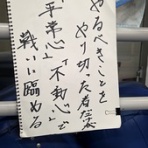 やるべきことを
やり切った者だけが
「平常心」「不動心」で
戦いに臨める